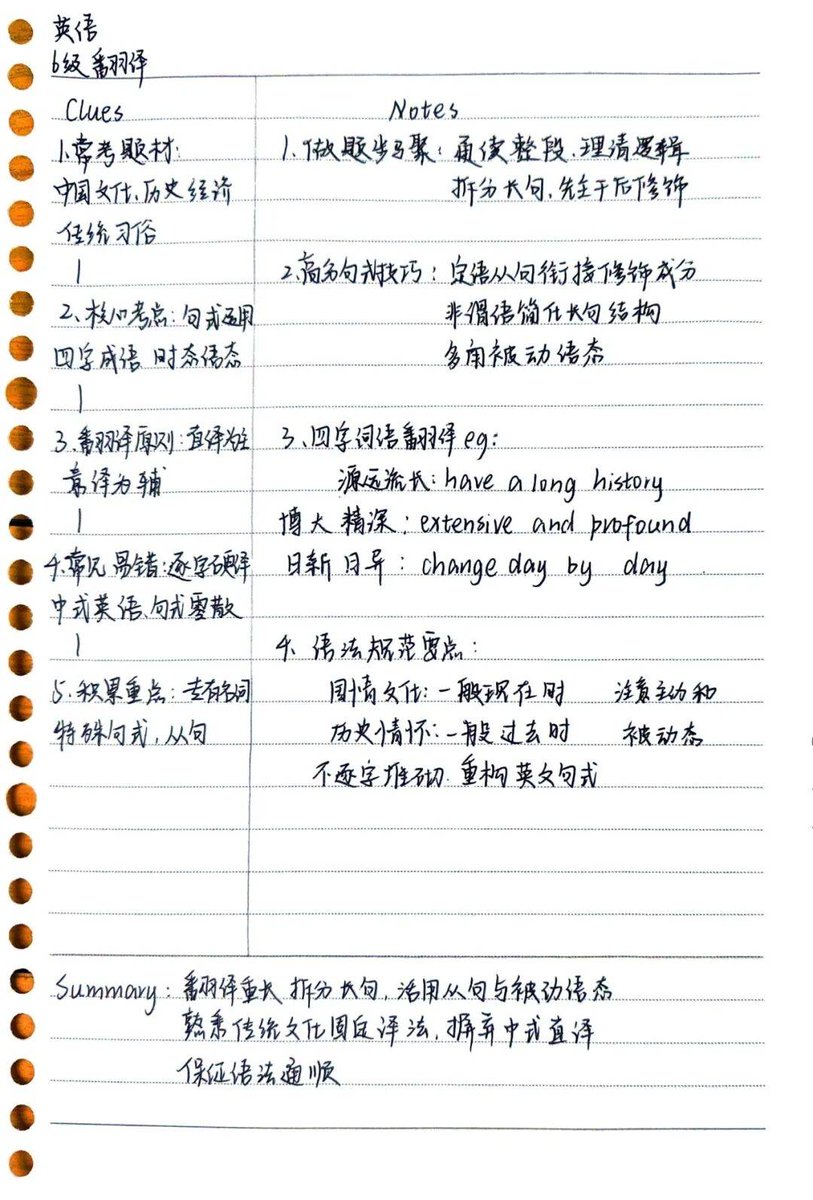 英语
6级翻译
Clues
1.常考题材:
中国文化、历史经济
传统习俗
2、核心考点:句式运用
四字成语 时态语态
3.翻译原则:直译为主
意译为辅
4.常见易错:逐字硬译
中式英语、句式零散
5.积累重点:专有名词
特殊句式,从句
Notes
1.做题步骤:通读整段、理清逻辑
拆分长句,先主干后修饰
2.高分句式技巧:定语从句衔接修饰成分
非谓语简化长句结构
多用被动语态
3、四字词语翻译eg:
源远流长:have a long history
博大精深:extensive and profound
日新日异:change day by day
4、语法规范要点:
国情文化:一般现在时 注意主动和
历史情怀:一般过去时 被动态
不逐字堆砌.重构英文句式
Summary:翻译重长拆分长句,活用从句与被动语态
熟悉传统文化固定译法,摒弃中式直译
保证语法通顺